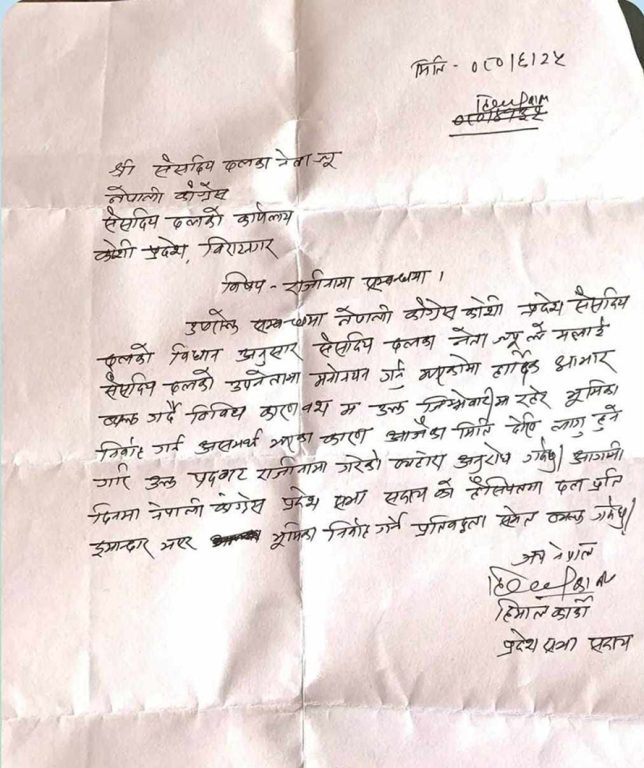 मिति - ०८०।६।२५
श्री संसदिय दलका नेता ज्यू
नेपाली काँग्रेस
संसदिय दलको कार्यलय
कोशी प्रदेश, विराटनगर
विषय - राजीनामा सम्बन्धमा ।
उपरोक्त सम्बन्धमा नेपाली काँग्रेस कोशी प्रदेश संसदिय
दलको विधान अनुसार संसदिय दलका नेता ज्यू ले मलाई
संसदिय दलको उपनेतामा मनोनयन गर्नु भएकोमा हार्दिक आभार
व्यक्त गर्दै विविध कारणवश म उक्त जिम्मेवारीमा रहेर भूमिका
निर्वाह गर्न असमर्थ भएका कारण आजैका मिति देखि लागु हुने
गरि उक्त पदबाट राजीनामा गरेको व्यहोरा अनुरोध गर्दछु। आगामी
दिनमा नेपाली काँग्रेस प्रदेश सभा सदस्य को हैसियतमा दल प्रति
इमान्दार भएर भूमिका निर्वाह गर्ने प्रतिबद्धता समेत व्यक्त गर्दछु।
जय नेपाल
हिमाल कार्की
प्रदेश सभा सदस्य